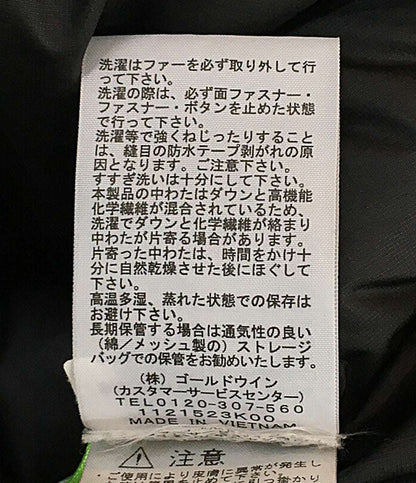 洗濯はファーを必ず取り外して行
って下さい。
洗濯の際は、必ず面ファスナー・
ファスナー・ボタンを止めた状態
で行って下さい。
洗濯等で強くねじったりすること
は、縫目の防水テープ剥がれの原
因となります。ご注意下さい。
すすぎ洗いは十分にして下さい。
本製品の中わたはダウンと高機能
化学繊維が混合されているため、
洗濯でダウンと化学繊維が絡まり
中わたが片寄る場合があります。
片寄った中わたは、時間をかけ十
分に自然乾燥させた後にほぐして
下さい。
高温多湿、蒸れた状態での保存は
お避け下さい。
長期保管する場合は通気性の良い
(綿/メッシュ製の)ストレージ
バッグでの保管をお勧めいたします。
(株)ゴールドウイン
(カスタマーサービスセンター)
TEL0120-307-560
1121523K00
MADE IN VIETNAM
注意